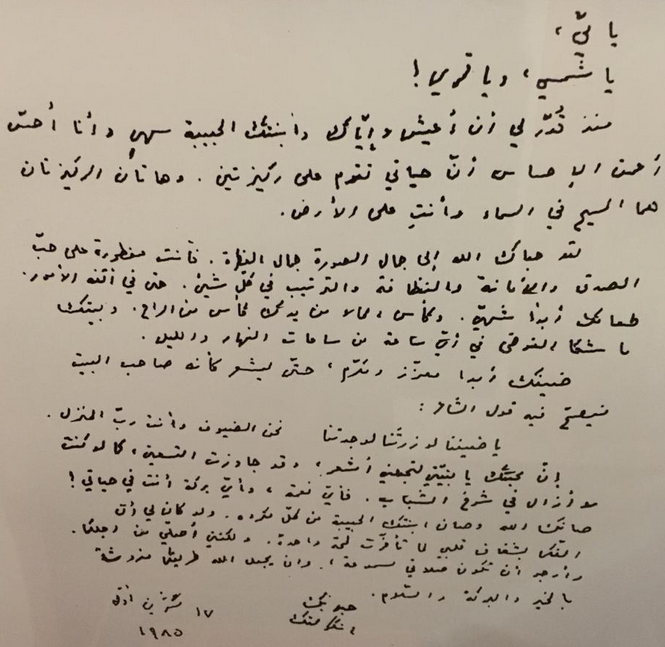 يا ميّ،
يا شمسي، ويا قمري!
منذ قُدّر لي أن أعيش وإيّاك وابنتك الحبيبة سهى وأنا أحسّ
أعمق الإحساس أنّ حياتي تقوم على ركيزتين. وهاتان الركيزتان
هما المسيح في السماء وأنتِ على الأرض.
لقد حباك الله إلى جمال الصورة جمال الفطرة. فأنت مفطورة على حبّ
الصدق والأمانة والنظافة والترتيب في كلّ شيء. حتى في أتفه الأمور.
طعامك أبداً شهيّ. وكأس الماء من يدك كأس من الراح. وبيتك
ما شكا الفوضى في أيّ ساعة من ساعات النهار والليل.
ضيفك أبدا معزّز ومكرّم، حتّى ليشعر كأنه صاحب البيت
فيصحّ فيه قول الشاعر:
يا ضيفنا لو زرتَنا لوجدتنا نحن الضيوف وأنت ربّ المنزل.
إنّ محبّتك يا بنيّتي لتجعلني أشعر، وقد جاوزت التسعين، كما لو كنت
لا أزال في شرخ الشباب. فأيّ نعمة، وأيّ بركة أنت في حياتي!
صانك الله وصان ابنتك الحبيبة من كلّ مكروه. ولو كان لي أن
أفتكما بشغاف قلبي لما تأخرت لمحة واحدة. ولكنني أصلّي من أجلكما.
وأرجو أن تكون صلاتي مسموعة، وأن يجعل الله طريقكما مفروشة
بالخير والبركة والسلام.
١٧ تشرين أول
١٩٨٥